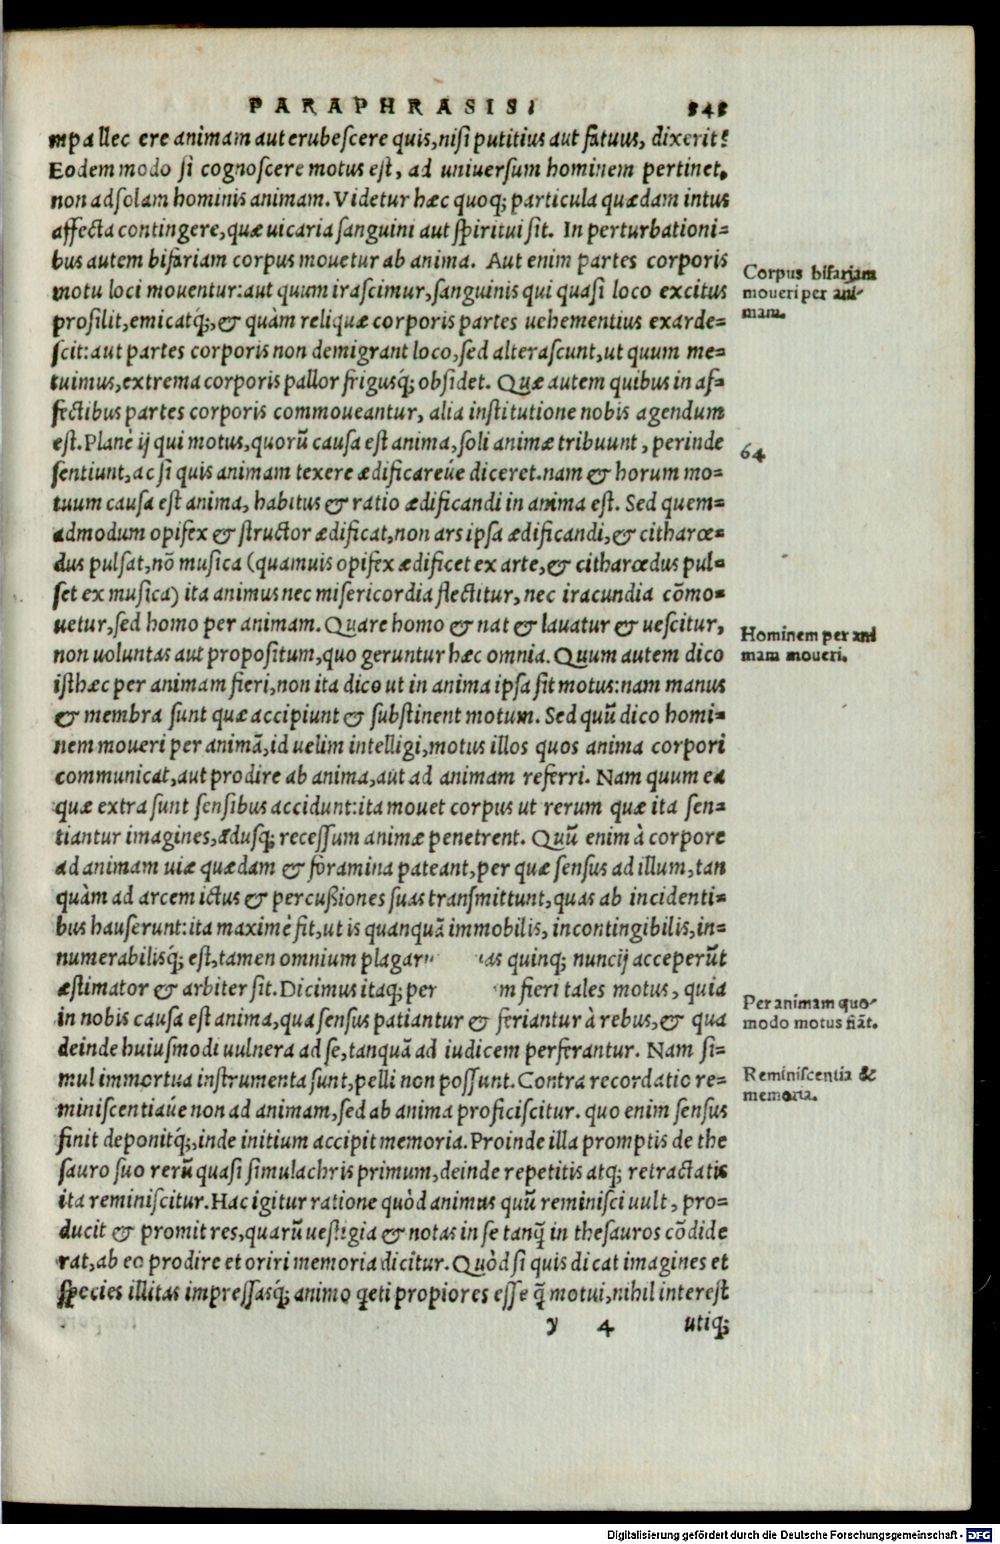 PARAPHRASIS.
mpallec ere animam aut erubescere quis, nisi putitius aut fatuus, dixerit?
Eodem modo si cognoscere motus est, ad uniuersum hominem pertinet,
non ad solam hominis animam. Videtur hæc quoq; particula quædam intus
affecta contingere, quæ uicaria sanguini aut spiritui sit. In perturbationi=
bus autem bifariam corpus mouetur ab anima. Aut enim partes corporis
motu loci mouentur: aut quum irascimur, sanguinis qui quasi loco excitus
prosilit, emicatq́;, & quàm reliquæ corporis partes uehementius exarde=
scit: aut partes corporis non demigrant loco, sed alterascunt, ut quum me=
tuimus, extrema corporis pallor frigusq́; obsidet. Quæ autem quibus in af=
fectibus partes corporis commoueantur, alia institutione nobis agendum
est. Planè ij qui motus, quorū causa est anima, soli animæ tribuunt, perinde
sentiunt, ac si quis animam texere ædificareúe diceret. nam & horum mo=
tuum causa est anima, habitus & ratio ædificandi in anima est. Sed quem=
admodum opifex & structor ædificat, non ars ipsa ædificandi, & citharœ=
dus pulsat, nō musica (quamuis opifex ædificet ex arte, & citharœdus pul=
set ex musica) ita animus nec misericordia flectitur, nec iracundia cōmo=
uetur, sed homo per animam. Quare homo & nat & lauatur & uescitur,
non uoluntas aut propositum, quo geruntur hæc omnia. Quum autem dico
isthæc per animam fieri, non ita dico ut in anima ipsa sit motus: nam manus
& membra sunt quæ accipiunt & substinent motum. Sed quū dico homi=
nem moueri per animā, id uelim intelligi, motus illos quos anima corpori
communicat, aut prodire ab anima, aut ad animam referri. Nam quum ea
quæ extra sunt sensibus accidunt: ita mouet corpus ut rerum quæ ita sen=
tiantur imagines, adusq; recessum animæ penetrent. Quū enim à corpore
ad animam uiæ quædam & foramina pateant, per quæ sensus ad illum, tan
quàm ad arcem ictus & percußiones suas transmittunt, quas ab incidenti=
bus hauserunt: ita maximè fit, ut is quanquā immobilis, incontingibilis, in=
numerabilisq́; est, tamen omnium plagar as quinq; nuncij acceperūt
æstimator & arbiter sit. Dicimus itaq; per m fieri tales motus, quia
in nobis causa est anima, qua sensus patiantur & feriantur à rebus, & qua
deinde huiusmodi uulnera ad se, tanquā ad iudicem perferantur. Nam si=
mul immortua instrumenta sunt, pelli non possunt. Contra recordatio re=
miniscentiaúe non ad animam, sed ab anima proficiscitur. quo enim sensus
finit deponitq́;, inde initium accipit memoria. Proinde illa promptis de the
sauro suo rerū quasi simulachris primum, deinde repetitis atq; retractatis
ita reminiscitur. Hac igitur ratione quòd animus quū reminisci uult, pro=
ducit & promit res, quarū uestigia & notas in se tanq̄ in thesauros cōdide
rat, ab eo prodire et oriri memoria dicitur. Quòd si quis dicat imagines et
species illitas impressasq́; animo q̄eti propiores esse q̄ motui, nihil interest
y 4 utiq;
Corpus bifariam
moueri per ani-
mam.
64
Hominem per ani
mam moueri.
Per animam quo-
modo motus fiāt.
Reminiscentia &
memoria.
Digitalisierung gefördert durch die Deutsche Forschungsgemeinschaft - DFG